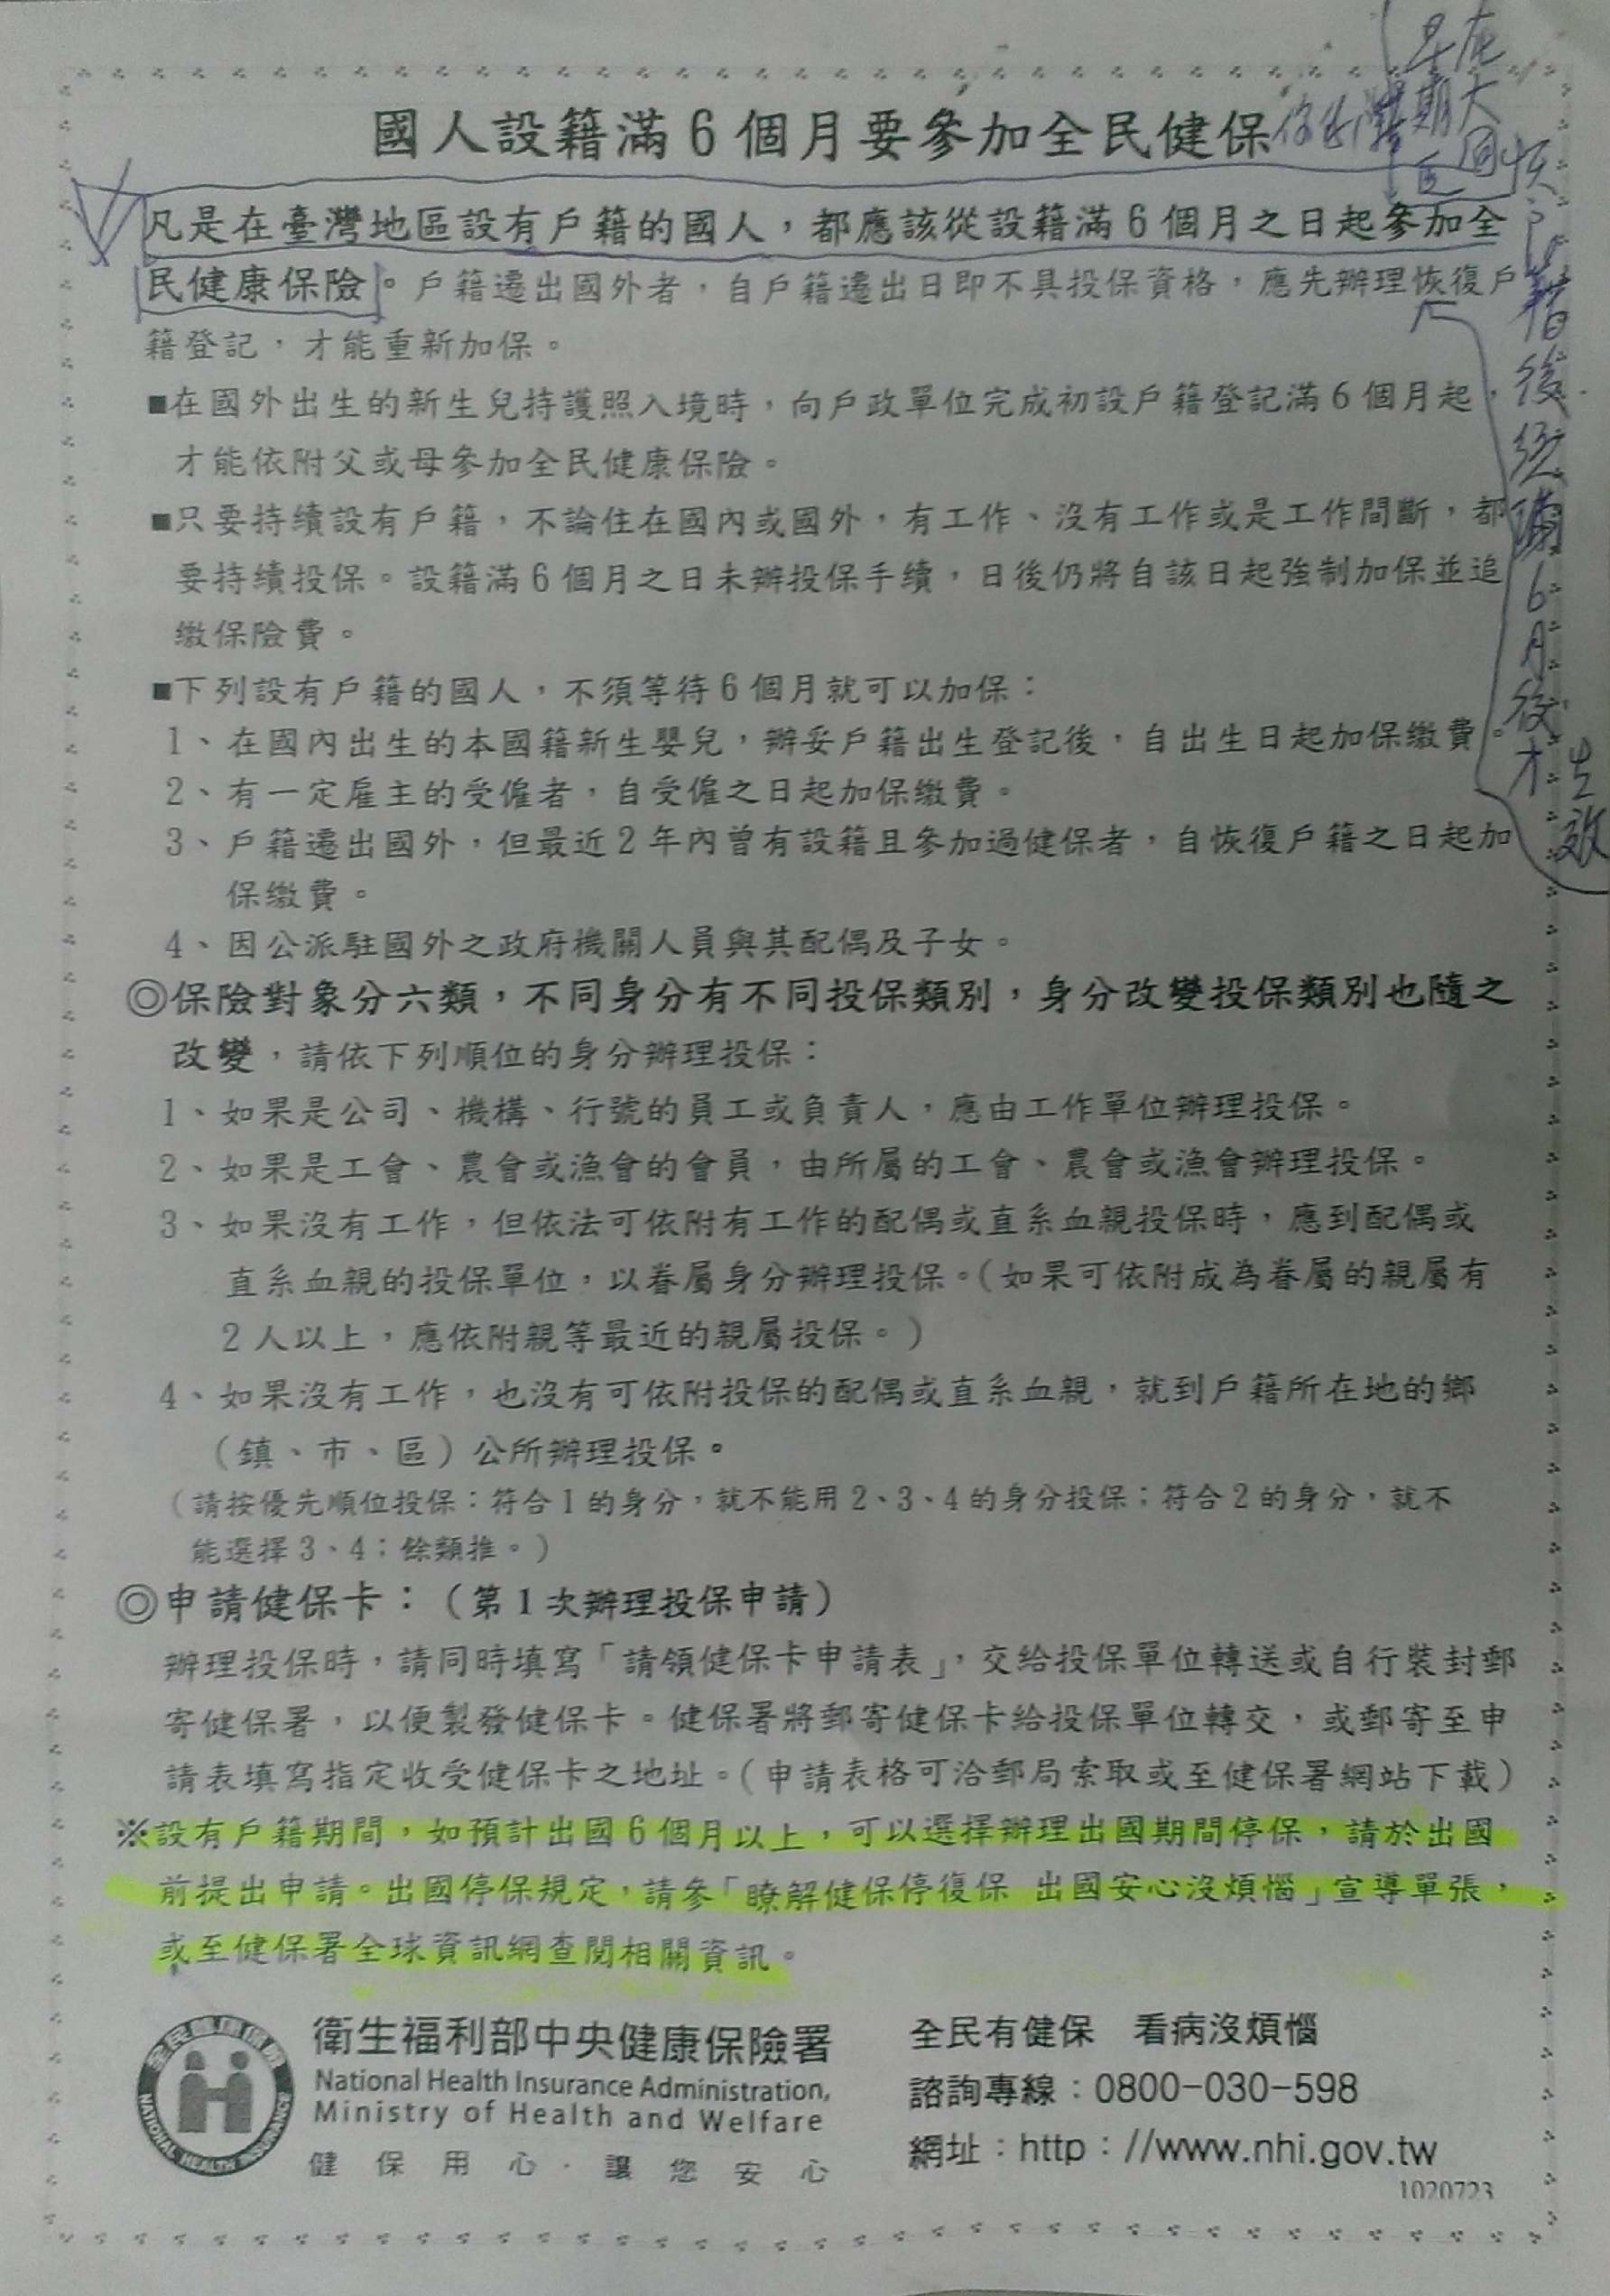 國人設籍滿6個月要參加全民健保
凡是在臺灣地區設有戶籍的國人，都應該從設籍滿6個月之日起參加全
民健康保險。戶籍遷出國外者，自戶籍遷出日即不具投保資格，應先辦理恢復戶
籍登記，才能重新加保。
■在國外出生的新生兒持護照入境時，向戶政單位完成初設戶籍登記滿6個月起，
才能依附父或母參加全民健康保險。
■只要持續設有戶籍，不論住在國內或國外，有工作、沒有工作或是工作間斷，都
要持續投保。設籍滿6個月之日未辦投保手續，日後仍將自該日起強制加保並追
繳保險費。
■下列設有戶籍的國人，不須等待6個月就可以加保：
1、在國內出生的本國籍新生嬰兒，辦妥戶籍出生登記後，自出生日起加保繳費。
2、有一定雇主的受僱者，自受僱之日起加保繳費。
3、戶籍遷出國外，但最近2年內曾有設籍且參加過健保者，自恢復戶籍之日起加
保繳費。
4、因公派駐國外之政府機關人員與其配偶及子女。
◎保險對象分六類，不同身分有不同投保類別，身分改變投保類別也隨之
改變，請依下列順位的身分辦理投保：
1、如果是公司、機構、行號的員工或負責人，應由工作單位辦理投保。
2、如果是工會、農會或漁會的會員，由所屬的工會、農會或漁會辦理投保。
3、如果沒有工作，但依法可依附有工作的配偶或直系血親投保時，應到配偶或
直系血親的投保單位，以眷屬身分辦理投保。（如果可依附成為眷屬的親屬有
2人以上，應依附親等最近的親屬投保。）
4、如果沒有工作，也沒有可依附投保的配偶或直系血親，就到戶籍所在地的鄉
（鎮、市、區）公所辦理投保。
（請按優先順位投保：符合1的身分，就不能用2、3、4的身分投保；符合2的身分，就不
能選擇3、4；餘類推。）
◎申請健保卡：（第1次辦理投保申請）
辦理投保時，請同時填寫「請領健保卡申請表」，交給投保單位轉送或自行裝封郵
寄健保署，以便製發健保卡。健保署將郵寄健保卡給投保單位轉交，或郵寄至申
請表填寫指定收受健保卡之地址。（申請表格可洽郵局索取或至健保署網站下載）
※設有戶籍期間，如預計出國6個月以上，可以選擇辦理出國期間停保，請於出國
前提出申請。出國停保規定，請參「瞭解健保停復保 出國安心沒煩惱」宣導單張，
或至健保署全球資訊網查閱相關資訊。
全民健康保險
NATIONAL HEALTH INSURANCE
衛生福利部中央健康保險署
National Health Insurance Administration,
Ministry of Health and Welfare
健保用心．讓您安心
全民有健保 看病沒煩惱
諮詢專線：0800-030-598
網址：http：//www.nhi.gov.tw
1020723
籍後
滿6月後才
生效